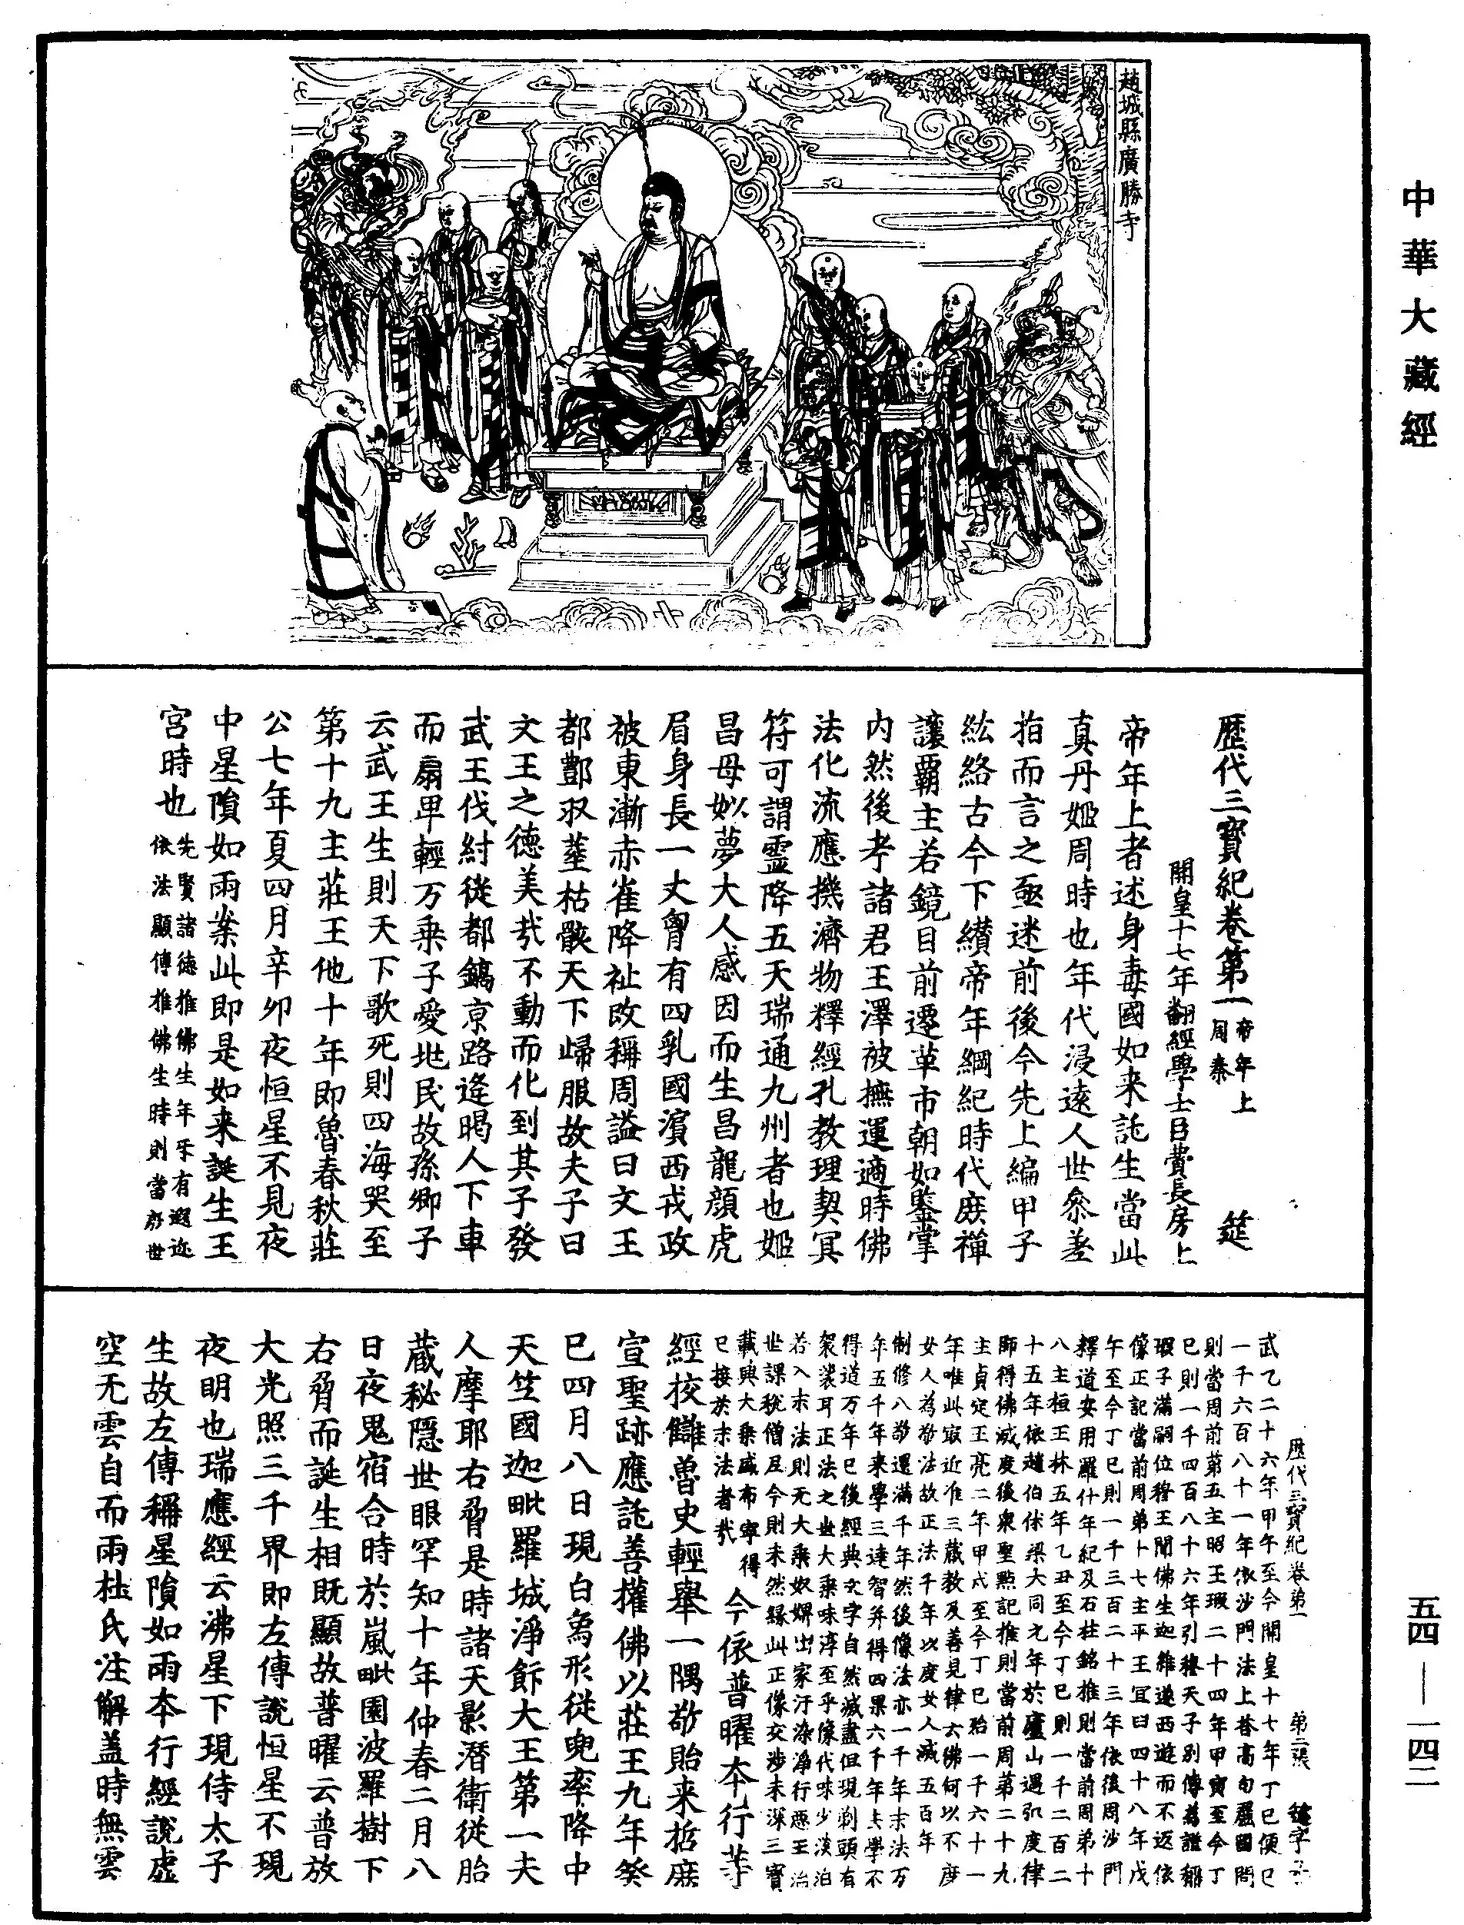 中華大藏經
趙城縣廣勝寺
歷代三寶紀卷第一 帝年上 周秦 筵
開皇十七年翻經學士臣費長房上
帝年上者述身毒國如来託生當此
真丹姬周時也年代浸遠人世叅差
指而言之亟迷前後今先上編甲子
紘絡古今下纘帝年綱紀時代庶禪
讓覇主若鏡目前遷革市朝如鑒掌
内然後考諸君王澤被撫運適時佛
法化流應機濟物釋經孔教理契冥
符可謂靈降五天瑞通九州者也姬
昌母姒夢大人感因而生昌龍顔虎
眉身長一丈胷有四乳國濱西戎政
被東漸赤雀降祉改稱周謚曰文王
都酆収葬枯骸天下歸服故夫子曰
文王之德美㢤不動而化到其子發
武王伐紂從都鎬京路逢暍人下車
而扇甲輕万乗子愛地民故孫卿子
云武王生則天下歌死則四海哭至
第十九主莊王他十年即魯春秋莊
公七年夏四月辛卯夜恒星不見夜
中星隕如雨案此即是如来誕生王
宮時也 先賢諸德推佛生年牙有遐迩
依法顯傳推佛生時則當殷世
武乙二十六年甲午至今開皇十七年丁巳便已
一千六百八十一年依沙門法上荅高句麗國問
則當周前第五主昭王瑕二十四年甲寅至今丁
巳則一千四百八十六年引穆天子別傳為證稱
瑕子滿嗣位穆王聞佛生迦維遂西遊而不返依
像正記當前周弟十七主平王宜臼四十八年戊
午至今丁巳則一千三百二十三年依後周沙門
釋道安用羅什年紀及石柱銘推則當前周弟十
八主桓王林五年乙丑至今丁巳則一千二百二
十五年依趙伯休梁大同元年於廬山遇弘度律
師得佛滅度後衆聖點記推則當前周第二十九
主貞定王亮二年甲戌至今丁巳始一千六十一
年唯此㝡近准三藏教及善見律云佛何以不度
女人為敬法故正法千年以度女人減五百年
制修八敬還滿千年然後像法亦一千年末法万
年五千年来學三達智并得四果六千年上學不
得道万年已後經典文字自然滅盡但現剃頭有
袈裟耳正法之世大乘味淳至乎像代味少淡泊
若入末法則无大乘奴婢出家汙染淨行惡王治
世課稅僧尼今則未然縁此正像交涉未深三寶
載興大乘盛布寧得
已接於末法者㢤 今依普曜本行等
經校讎魯史輕舉一隅敬貽来哲庶
宣聖跡應託善權佛以莊王九年癸
巳四月八日現白象形從兜率降中
天竺國迦毗羅城淨飰大王第一夫
人摩耶右脅是時諸天影潛衛從胎
藏秘隱世眼罕知十年仲春二月八
日夜鬼宿合時於嵐毗園波羅樹下
右脅而誕生相既顯故普曜云普放
大光照三千界即左傳說恒星不現
夜明也瑞應經云沸星下現侍太子
生故左傳稱星隕如雨本行經說虛
空无雲自而雨杜氏注解蓋時無雲
歷代三寶紀卷弟一 第二張
五四—一四二